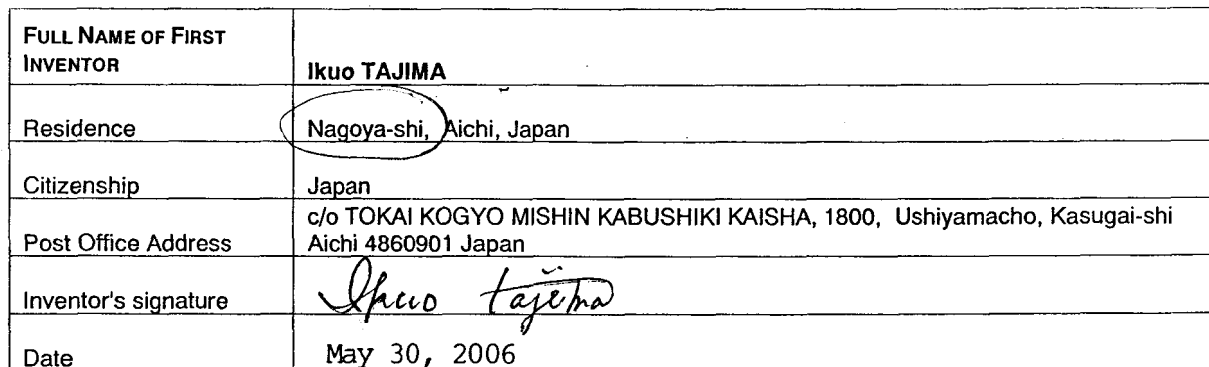 FULL NAME OF FIRST
INVENTOR
Ikuo TAJIMA
Residence
Nagoya-shi, Aichi, Japan
Citizenship
Japan
Post Office Address
c/o TOKAI KOGYO MISHIN KABUSHIKI KAISHA, 1800, Ushiyamacho, Kasugai-shi
Aichi 4860901 Japan
Inventor's signature
Ikuo Tajima
Date
May 30, 2006